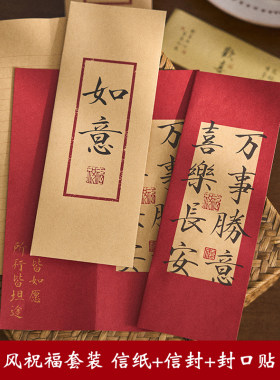 如意
万事勝意
喜樂長安
皆如愿
所行皆坦途
风祝福套装 信纸+信封+封口贴